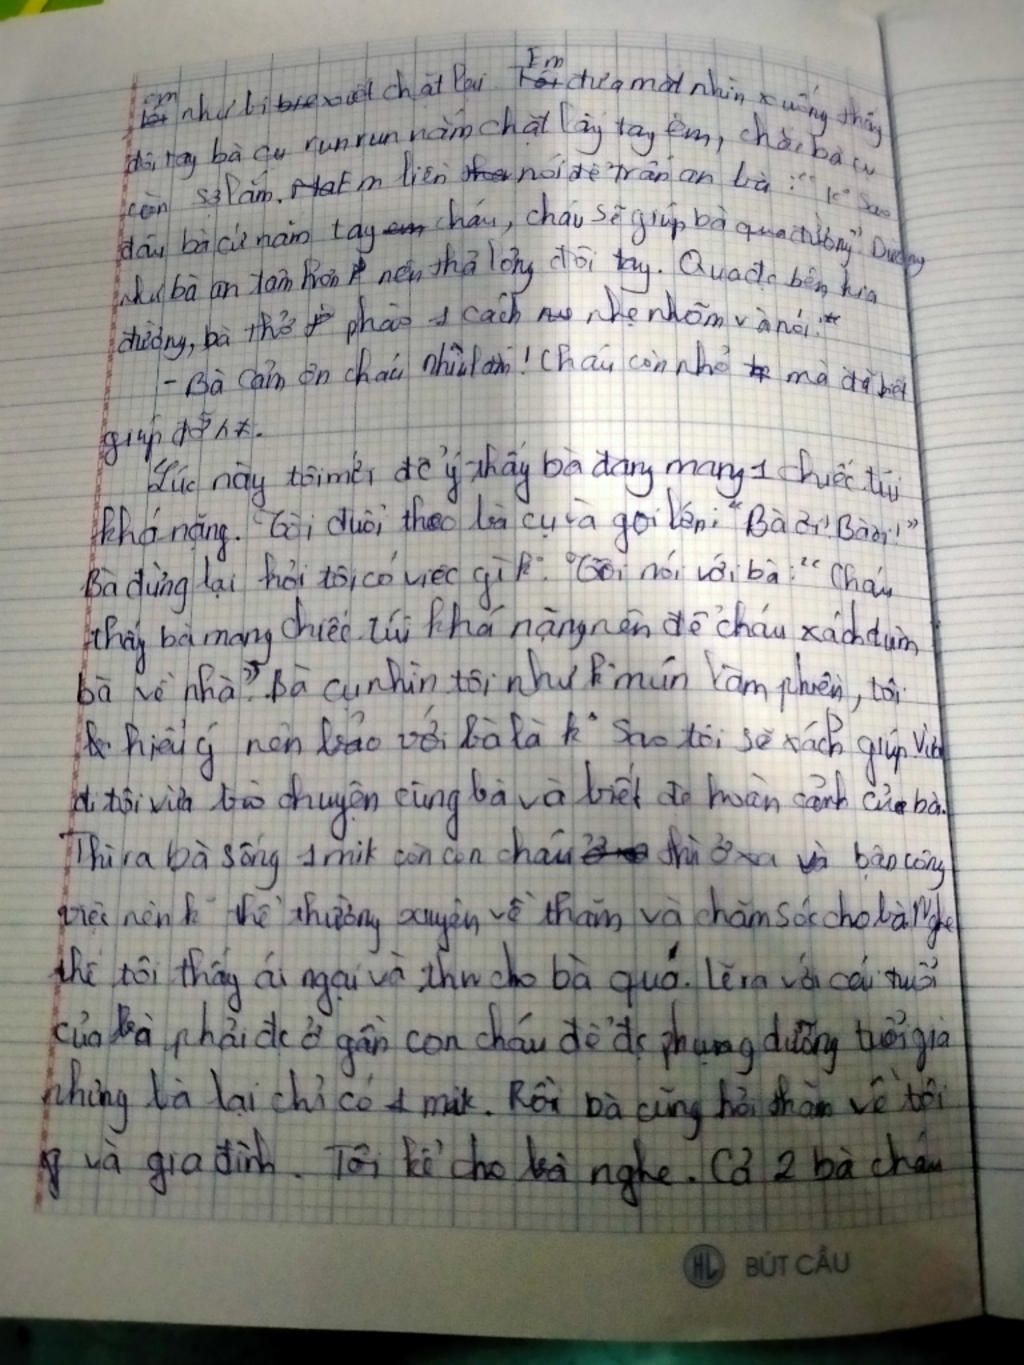 Em như bị siết chặt lại. Em đưa mắt nhìn xuống thấy
đôi tay bà cụ run run nắm chặt lấy tay em, chắc bà cụ
còn sợ lắm. Em liền nói để trấn an bà: "k° Sao
đâu bà cứ nắm tay cháu, cháu sẽ giúp bà qua đường" Dường
như bà an tâm hơn nên thả lỏng đôi tay. Qua đc bên kia
đường, bà thở phào 1 cách nhẹ nhõm và nói:
- Bà cảm ơn cháu nhiều lắm! Cháu còn nhỏ mà đã biết
giúp đỡ
Lúc này tôi mới để ý thấy bà đang mang 1 chiếc túi
khá nặng. Tôi đuổi theo bà cụ và gọi lớn: "Bà ơi! Bà ơi!"
Bà dừng lại hỏi tôi có việc gì k°. Tôi nói với bà: "Cháu
thấy bà mang chiếc túi khá nặng nên để cháu xách dùm
bà về nhà". Bà cụ nhìn tôi như k° mún làm phiền, tôi
hiểu ý nên bảo với bà là k° Sao tôi sẽ xách giúp Vừa
đi tôi vừa trò chuyện cùng bà và biết đc hoàn cảnh của bà.
Thì ra bà sống 1 mik còn con cháu thì ở xa và bận công
việc nên k° thể thường xuyên về thăm và chăm sóc cho bà Nghe
thế tôi thấy ái ngại và thw cho bà quá. Lẽ ra với cái tuổi
của bà phải đc ở gần con cháu để đc phụng dưỡng tuổi già
nhưng bà lại chỉ có 1 mik. Rồi bà cũng hỏi thăm về tôi
và gia đình. Tôi kể cho bà nghe. Cả 2 bà cháu
HL BÚT CÂU